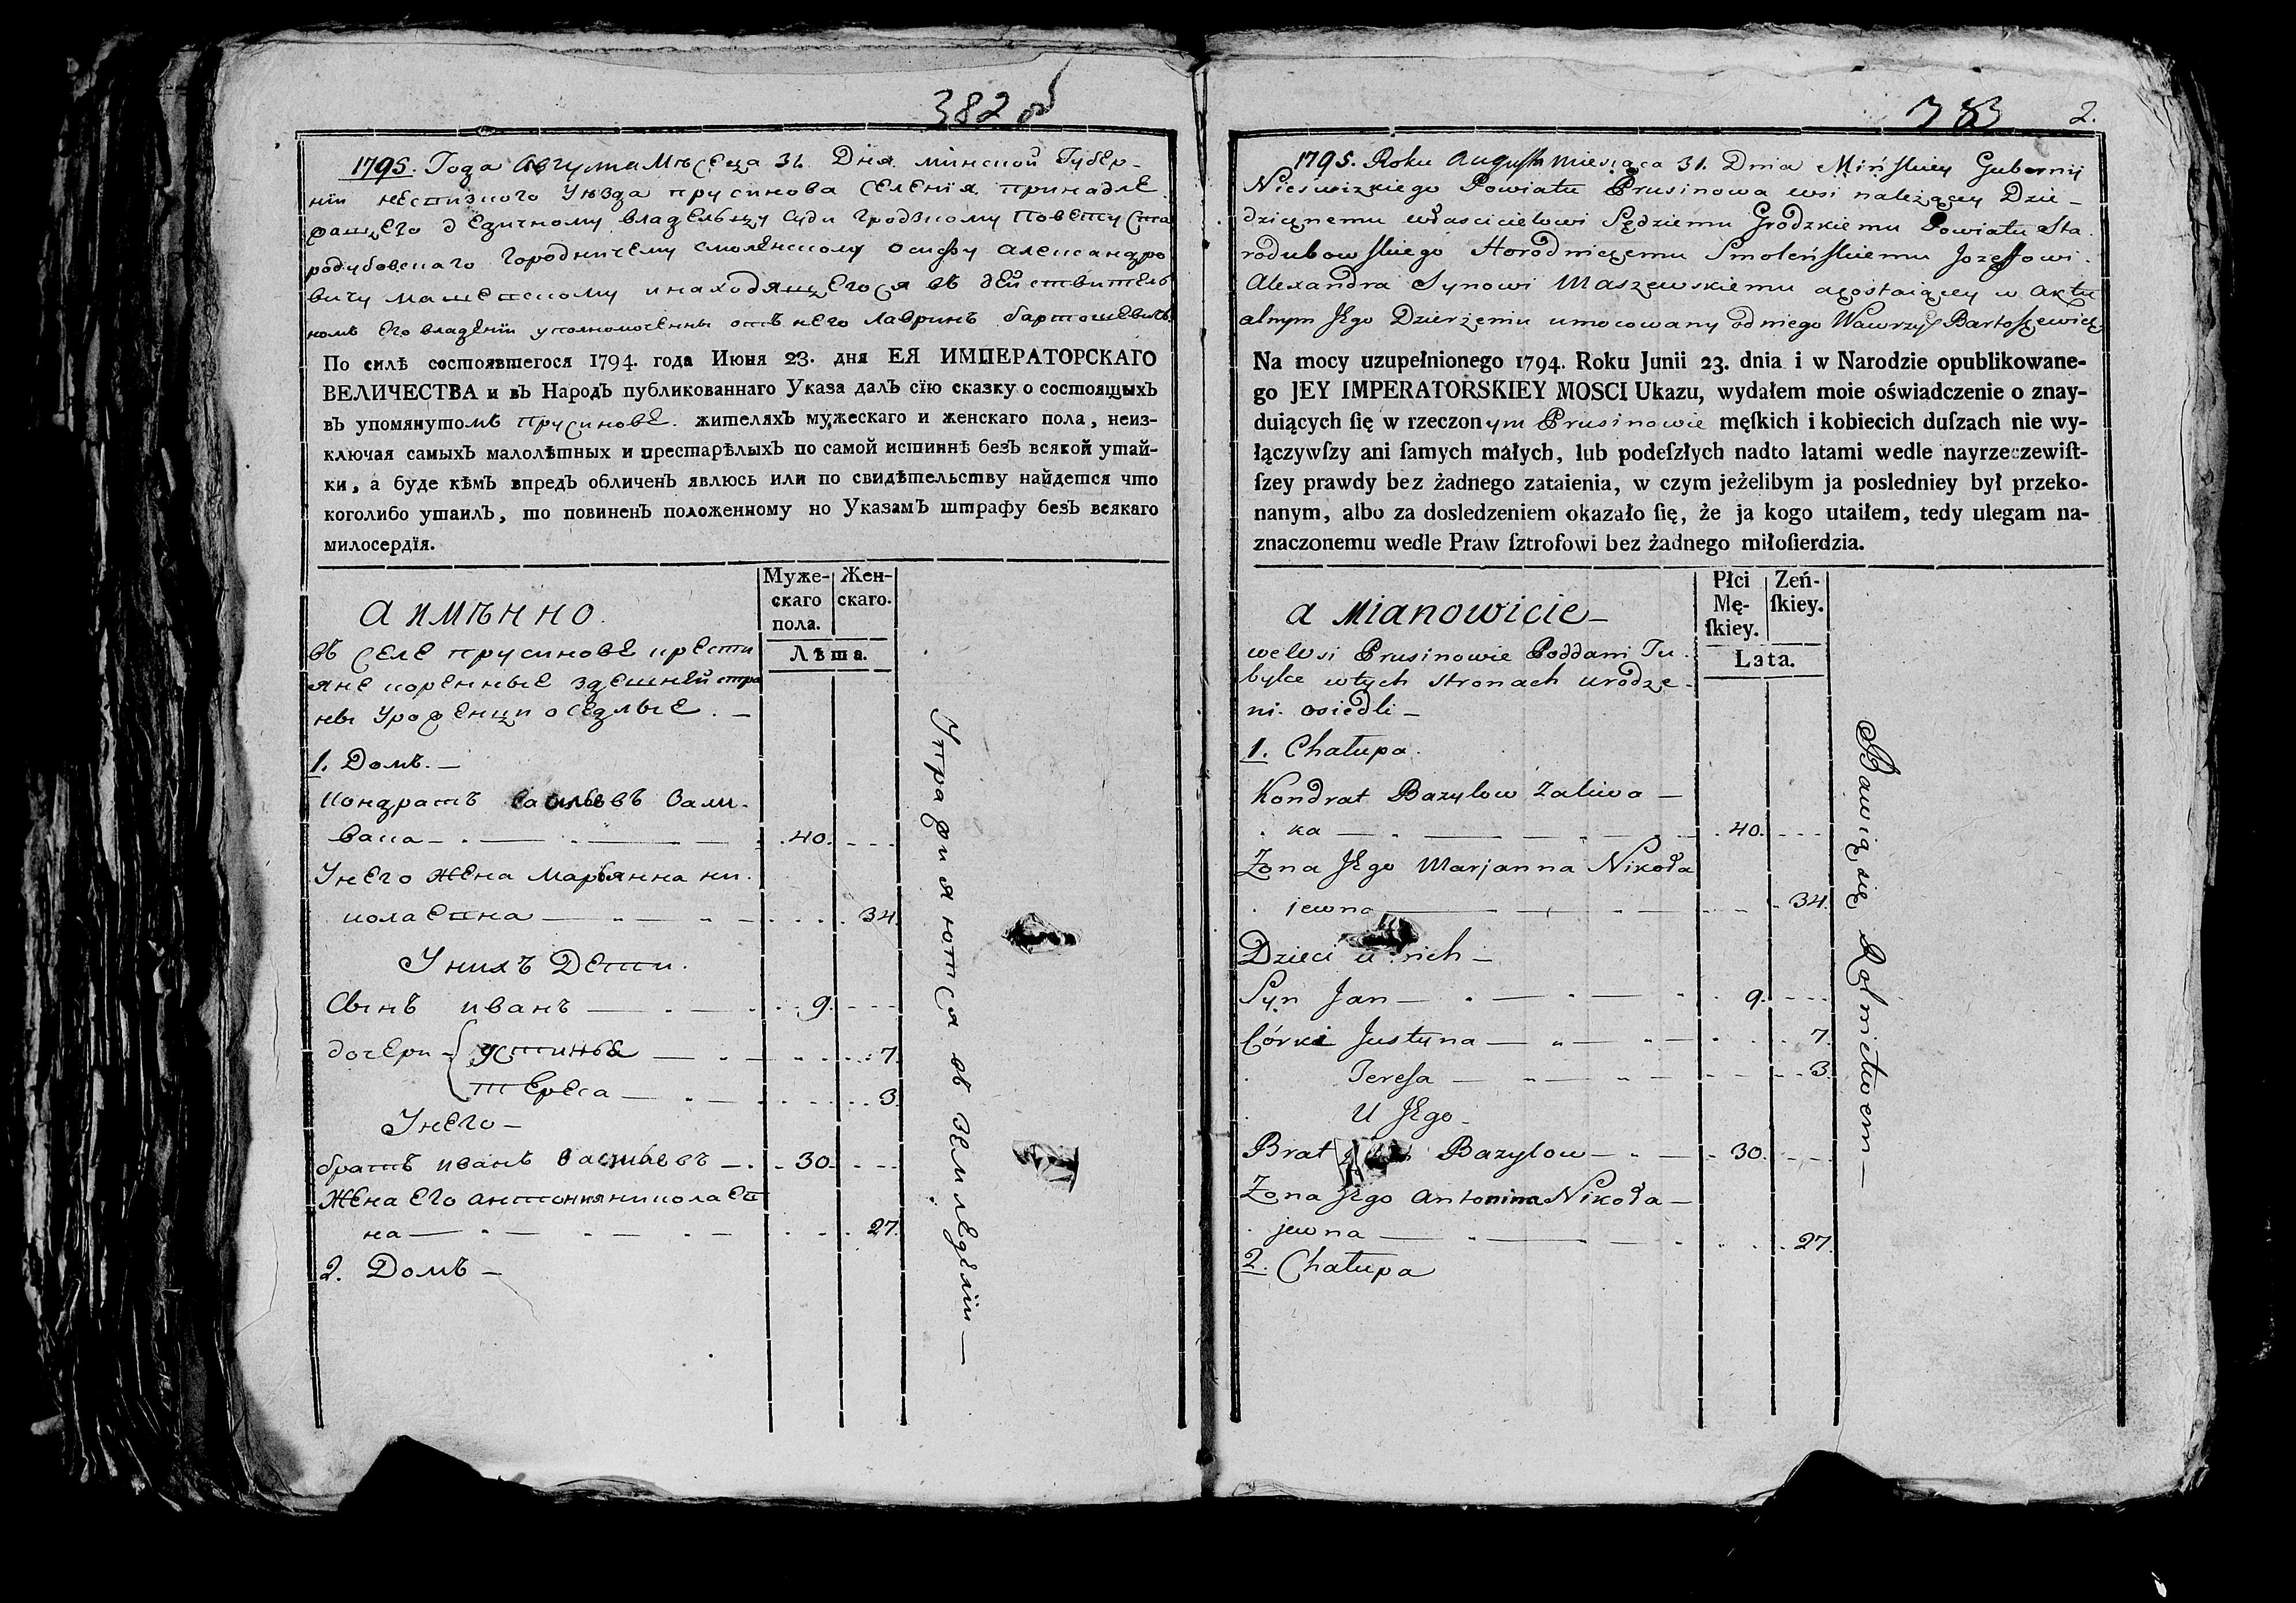 382 об
1795. Года Августа Мѣсеца 31. Дня. минской Губер-
нїи несвизкого Уѣзда прусинова селенїя принадле
жащего дедичному владельцу суди гродзкому Повету Ста
родубовскаго Городничему смоленскому осифу александро
вичу машевскому и находящегося въ действитель
номъ его владенїи уполномоченны отъ него Лавринъ бартошевичъ
По силѣ состоявшегося 1794. года Июня 23. дня ЕЯ ИМПЕРАТОРСКАГО
ВЕЛИЧЕСТВА и въ НародЪ публикованнаго Указа далЪ сїю сказку о состоящыхЪ
въ упомянутомъ прусинове. жителяхЪ мужескаго и женскаго пола, неиз-
ключая самыхЪ малолѣтныхЪ и престарѣлыхЪ по самой истиннѣ безЪ всякой утай-
ки, а буде кѣмЪ впредЪ обличенЪ явлюсь или по свидѣтельству найдется что
коголибо утаилЪ, то повиненЪ положенному но УказамЪ штрафу безЪ всякаго
милосердїя.
Муже-
скаго
пола.
Жен-
скаго.
Лѣта.
А имѣнно.
въ селе прусинове крести
яне коренные здешней стра
ны Уроженци оседлые. —
1. Домъ. —
Кондратъ васильевъ Зали-
вака — 40.
У него жена Марьянна ни-
колаевна — 34.
У нихъ Дети.
Сынъ иванъ — 9.
дочери { устинья — 7.
тереса — 3.
У него —
братъ иванъ васильевъ — 30.
Жена его антониянинколаев
на — 27.
2. Домъ —
Упражняются въ земледелїи —
383 2.
1795. Roku Augusta miesiąca 31. Dnia Mińskiey Gubernij
Nieswizkiego Powiatu Prusinowa wsi należącey Dzie-
dzicznemu własciciełowi Sędziemu Grodzkiemu Powiatu Sta.
rodubowskiego Horodniczemu Smoleńskiemu Jozeffowi.
Alexandra Synowi Maszewskiemu w aktu
alnym Jego Dzierżeniu umocowany od niego Wawrzy Bartoszewicz
Na mocy uzupełnionego 1794. Roku Junii 23. dnia i w Narodzie opublikowane-
go JEY IMPERATORSKIEY MOSCI Ukazu, wydałem moie oświadczenie o znay-
duiących ſię w rzeczonym Prusinowie męſkich i kobiecich duſzach nie wy-
łączywſzy ani ſamych małych, lub podeſzłych nadto latami wedle nayrzeczewiſt-
ſzey prawdy bez żadnego zataienia, w czym jeżelibym ja posledniey był przeko-
nanym, albo za dosledzeniem okazało ſię, że ja kogo utaiłem, tedy ulegam na-
znaczonemu wedle Praw ſztrofowi bez żadnego miłoſierdzia.
Płci
Mę-
ſkiey.
Zeń-
ſkiey.
Lata.
a mianowicie —
we Wsi Prusinowie Poddani Tu.
bylce w tych stronach urodze-
ni. osiedli —
1. Chałupa.
Kondrat Bazylow Zaliwa —
ka — 40.
Zona Jego Marjanna Nikoła
jewna — 34.
Dzieci u nich —
Syn Jan — 9.
Córki Justyna — 7.
Teresa — 3.
U Jego —
Brat Bazylow — 30.
Zona Jego Antonina Nikoła —
jewna — 27.
2. Chałupa
Bawią się Rolnictwem —